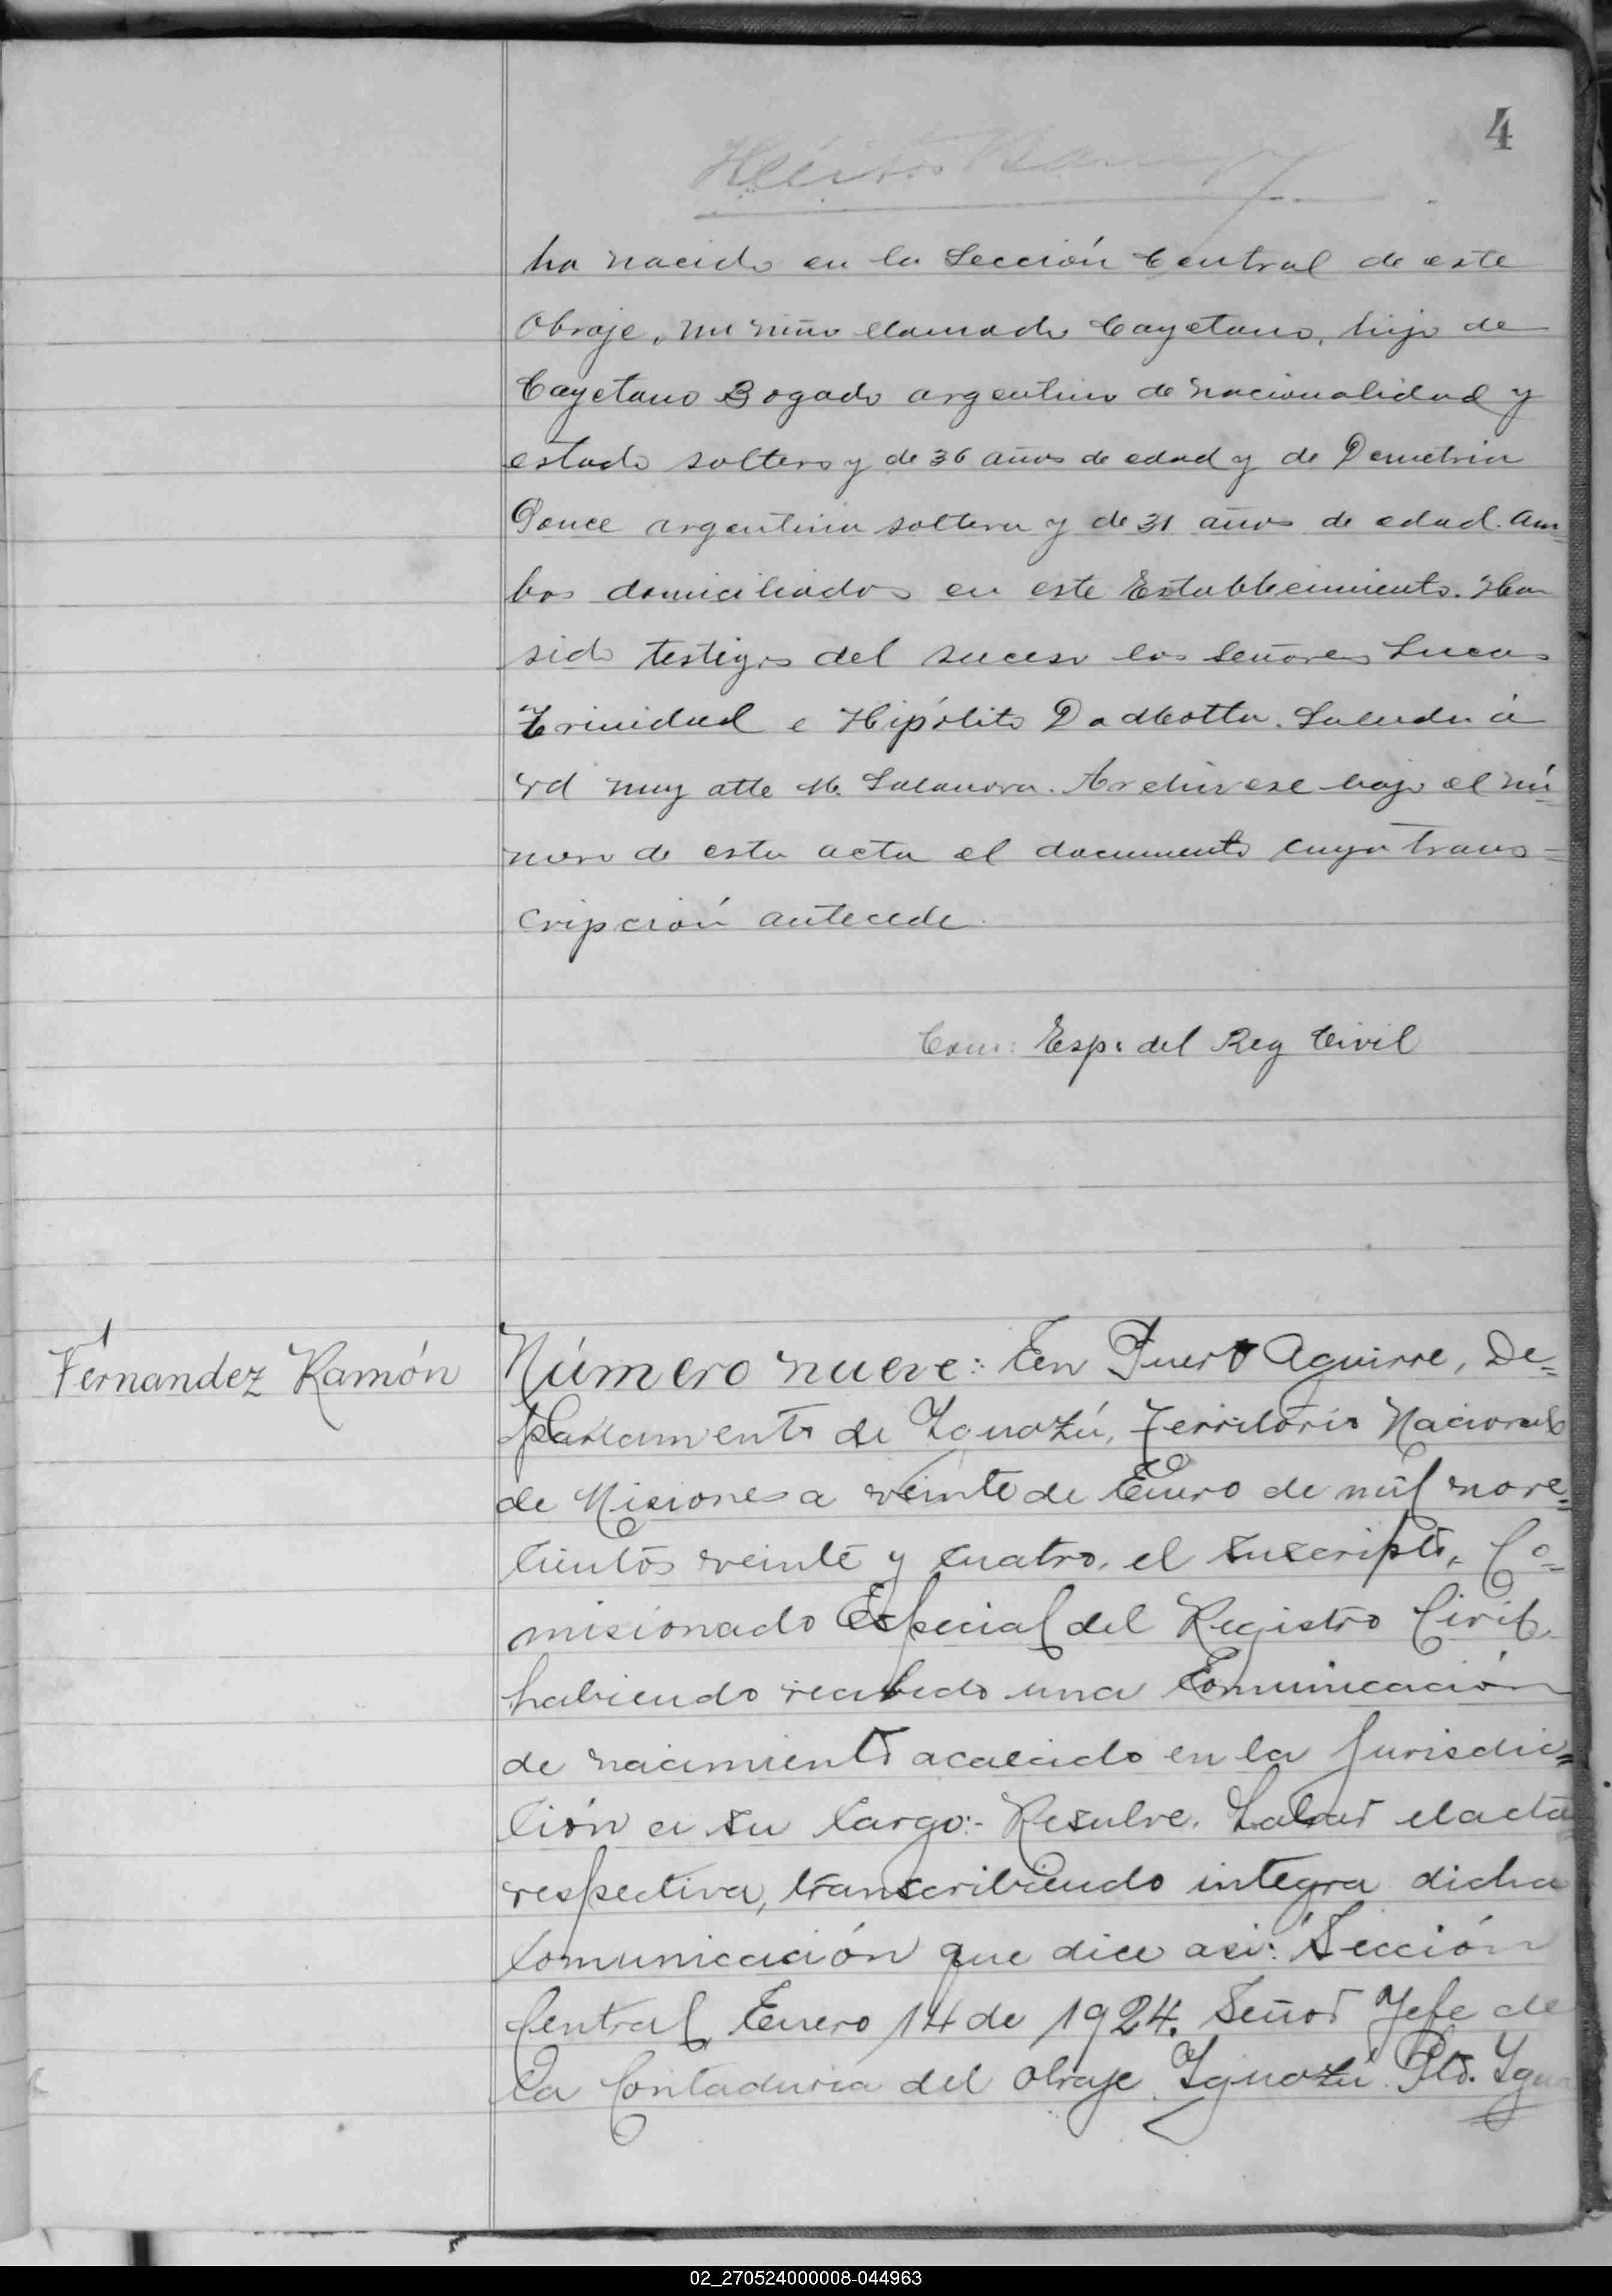 4
ha nacido en la Sección Central de este
Obraje, un niño llamado Cayetano, hijo de
Cayetano Bogado argentino de nacionalidad y
estado soltero y de 36 años de edad y de Demetria
Ponce argentina soltera y de 31 años de edad. Am=
bos domiciliados en este Establecimiento. Han
sido testigos del suceso los Señores Lucas
Trinidad e Hipólito Da Motta. Saluda á
vd muy atte M. Salanova. Archívese bajo el nú=
mero de esta acta el documento cuya trans=
cripción antecede.
Com: Esp: del Reg Civil
Fernandez Ramón
Número nueve: En Puerto Aguirre, De=
partamento de Iguazú, Territorio Nacional
de Misiones a veinte de Enero de mil nove=
cientos veinte y cuatro, el suscripto, Co=
misionado Especial del Registro Civil,
habiendo recibido una Comunicación
de nacimiento acaecido en la Jurisdic=
ción a su cargo:- Resulve. Labrar el acta
respectiva, transcribiendo integra dicha
Comunicación que dice así: Sección
Central, Enero 14 de 1924. Señor Jefe de
la Contaduria del Obraje Iguazú. Pto. Igua
02_270524000008-044963